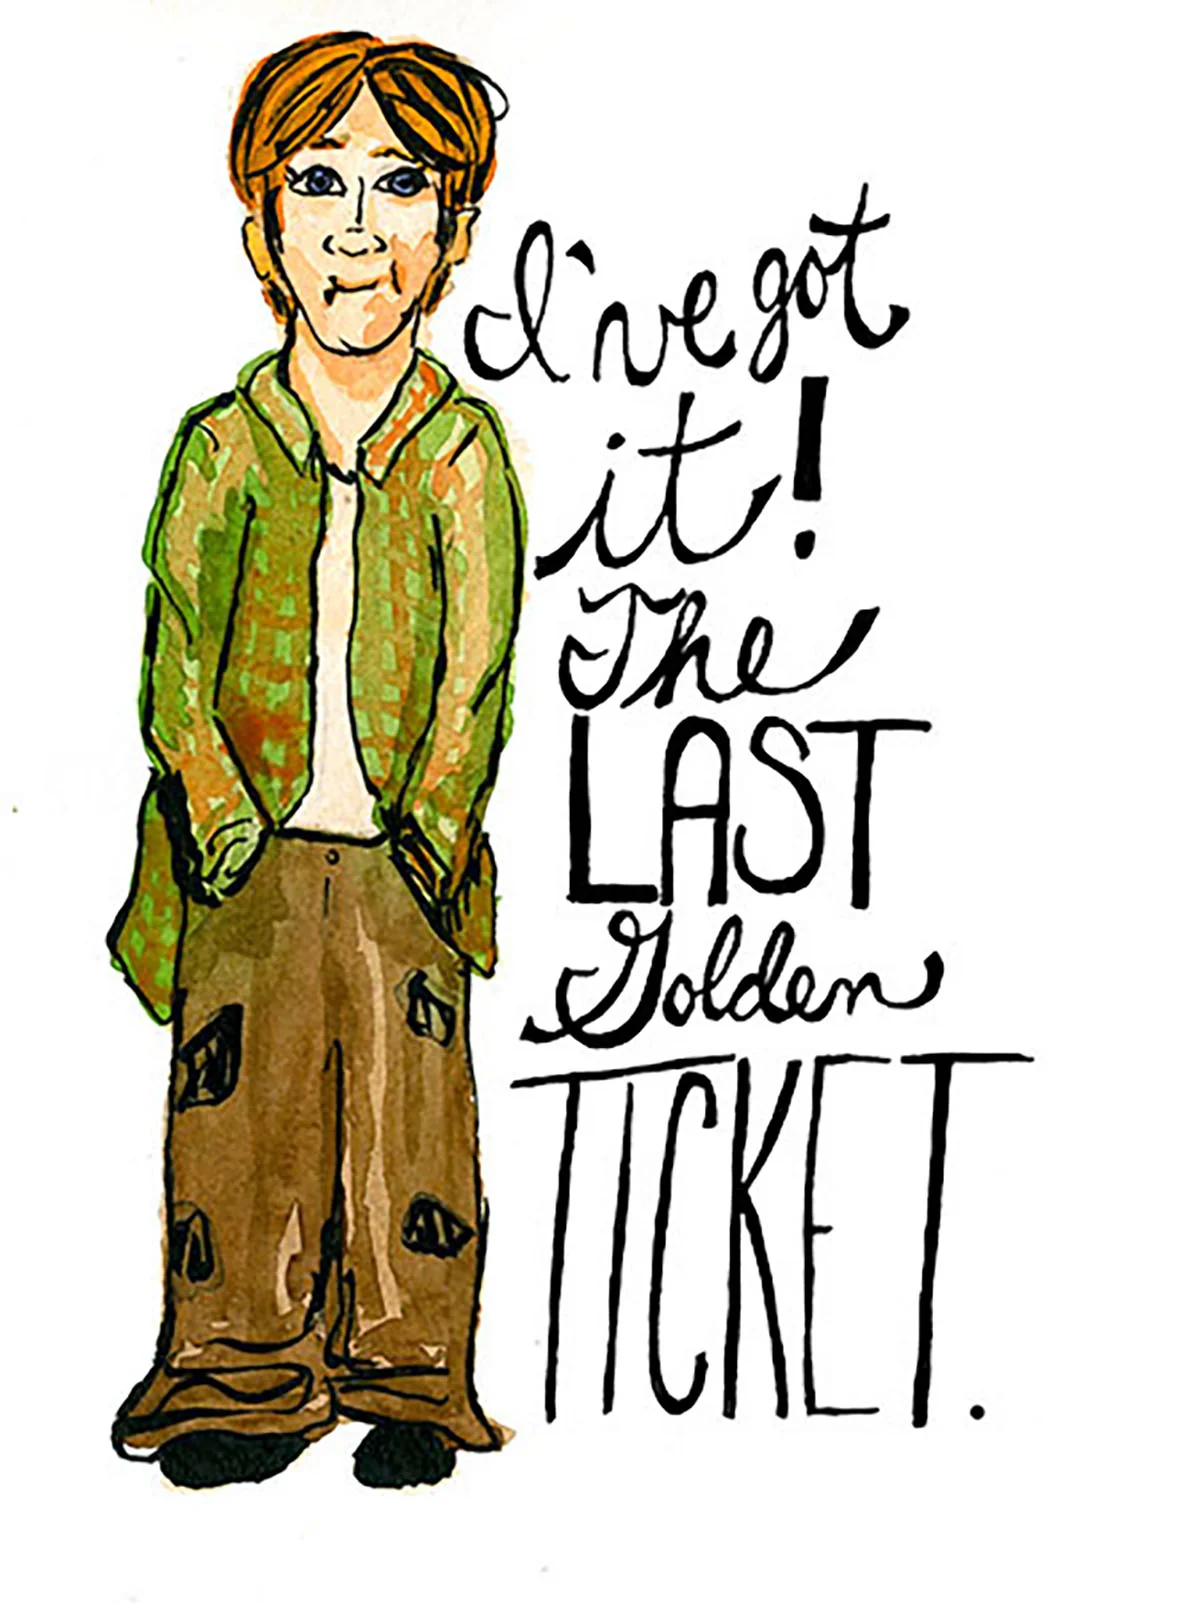 I've got
it!
The
LAST
Golden
TICKET.